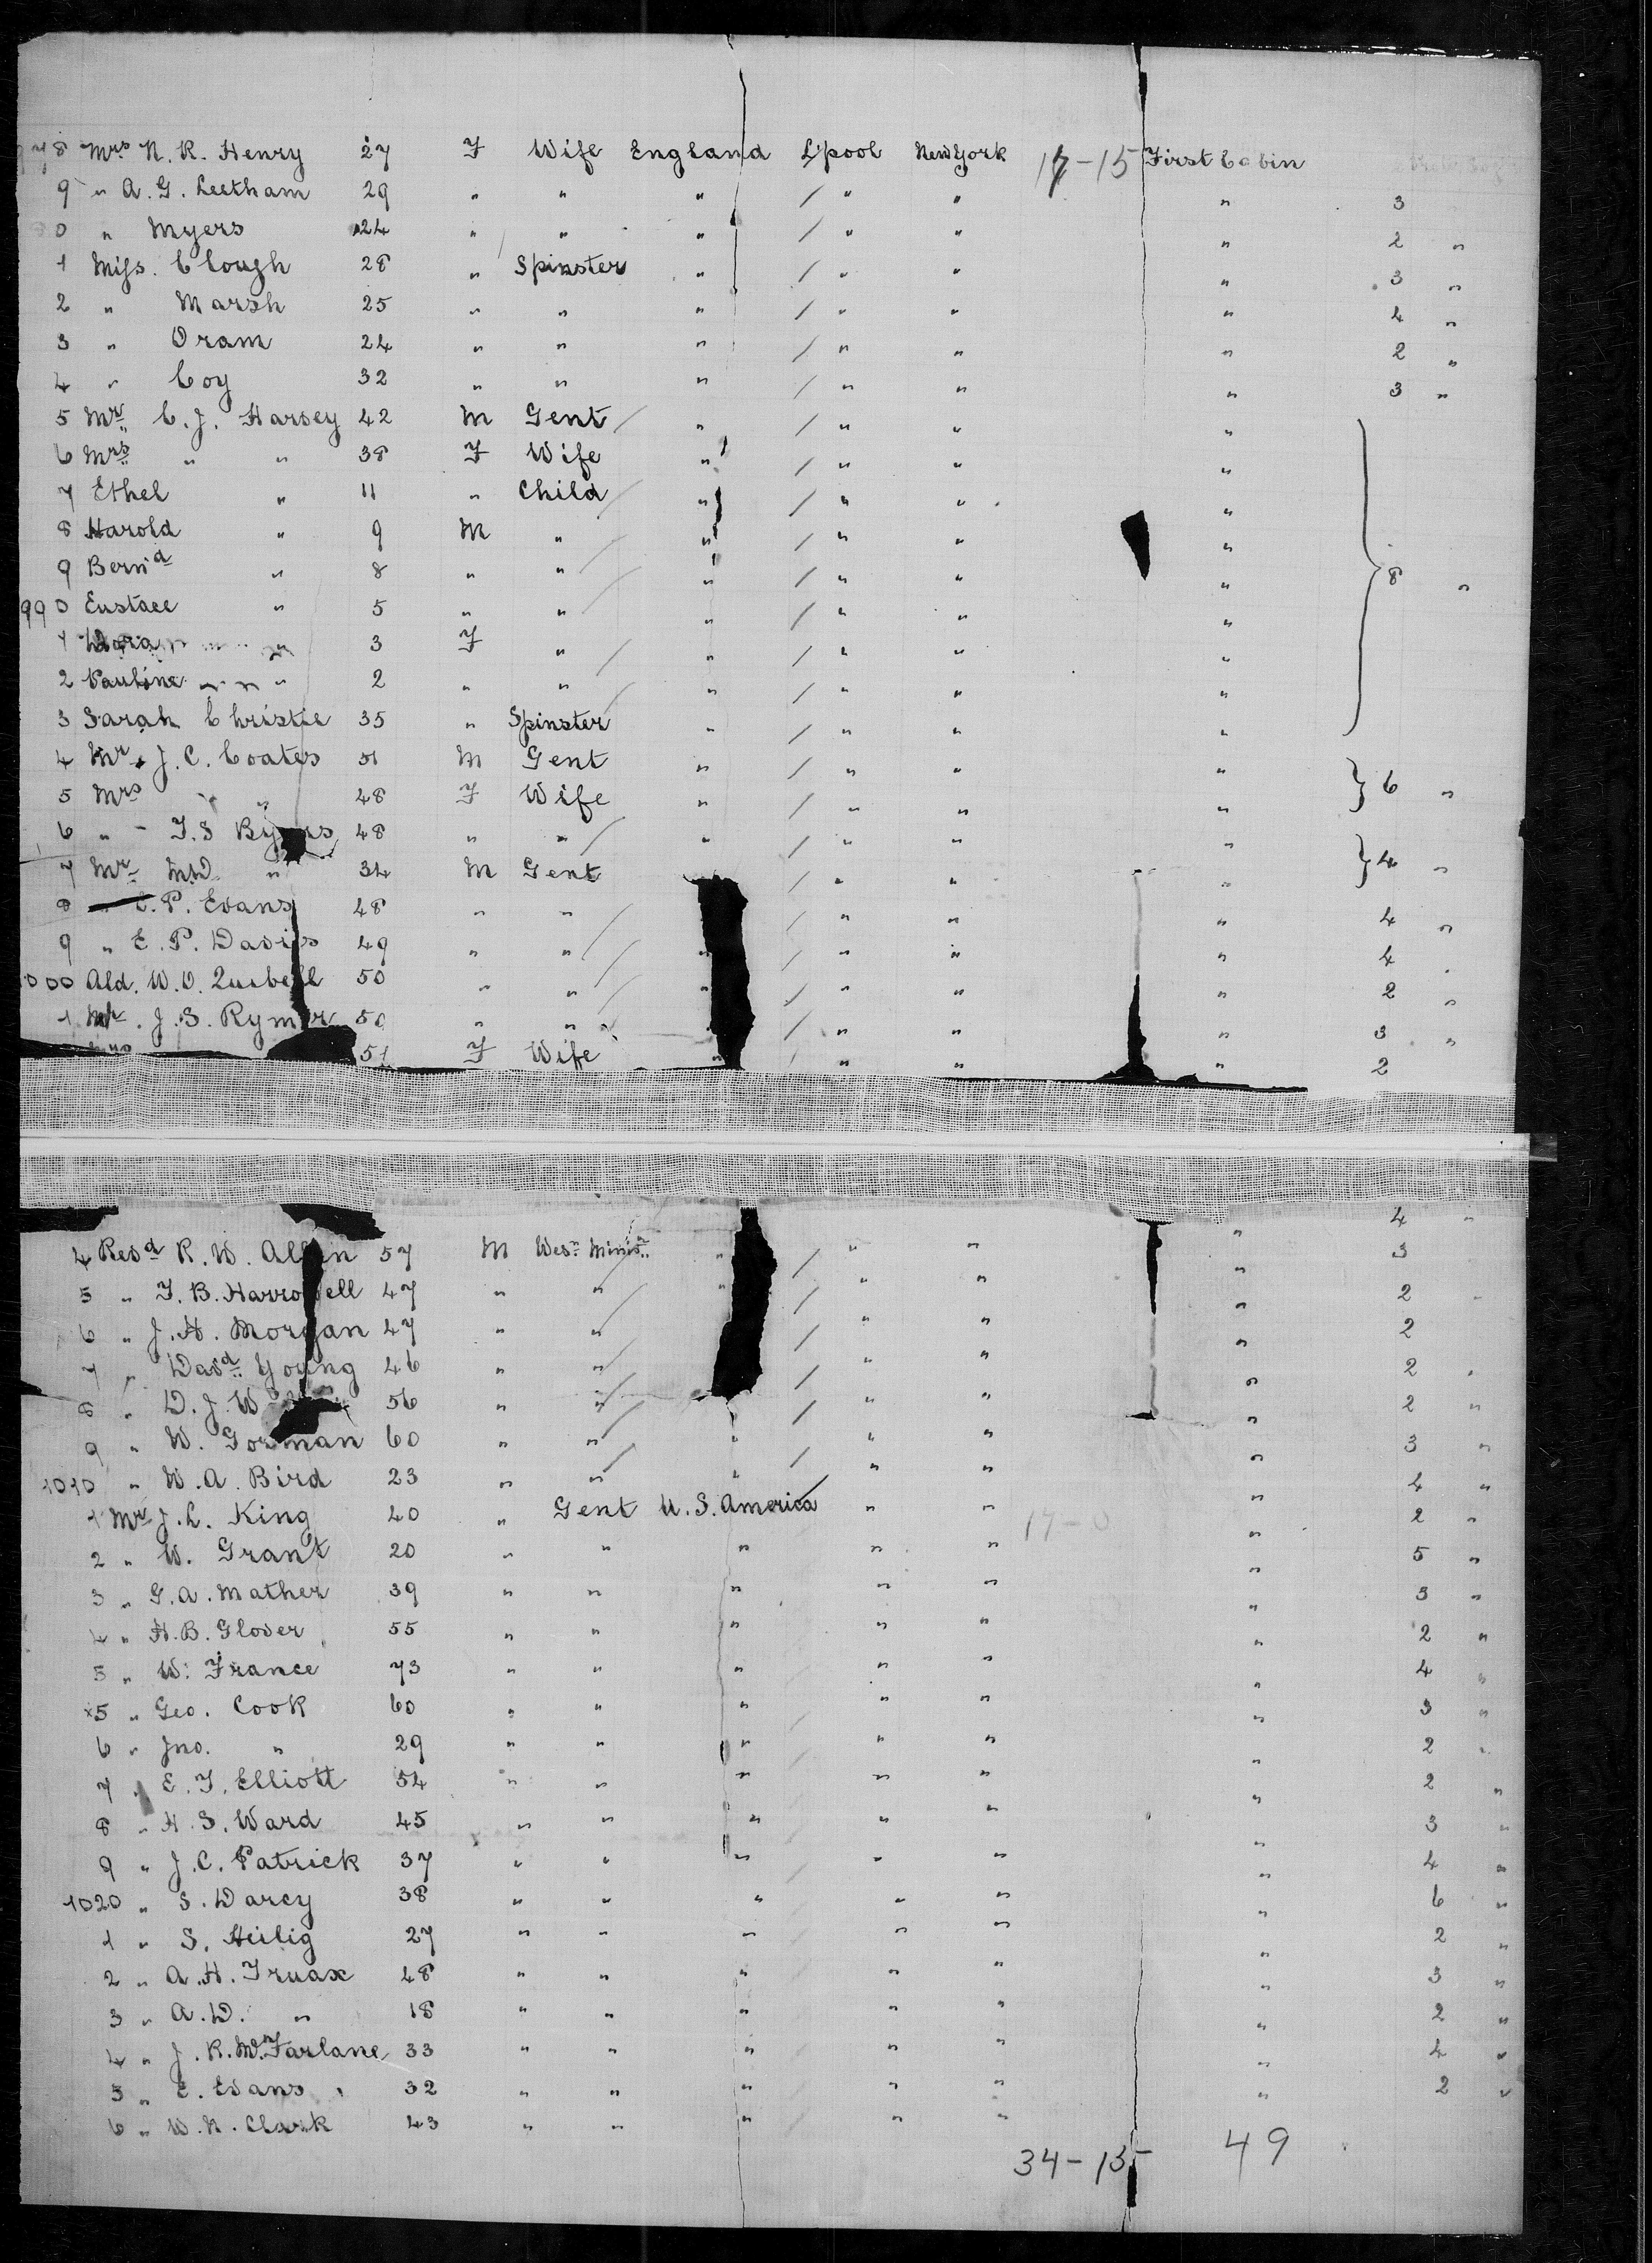 978 Mrs N. R. Henry 27 F Wife England L'pool New York 17-15 First Cabin
9 " A. G. Leetham 29 " " " / " " " 3
0 " Myers 24 " " " / " " " 2 "
1 Miss. Clough 28 " Spinster " / " " " 3 "
2 " Marsh 25 " " " / " " " 4 "
3 " Oram 24 " " " / " " " 2 "
4 " Coy 32 " " " / " " " 3 "
5 Mr C. J. Harvey 42 M Gent " / " " "
6 Mrs " " 38 F Wife " / " " "
7 Ethel " 11 " Child " / " " "
8 Harold " 9 M " " / " " "
9 Bernd " 8 " " " / " " " 8 "
990 Eustace " 5 " " " / " " "
1 Dora " 3 F " " / " " "
2 Pauline " 2 " " " / " " "
3 Sarah Christie 35 " Spinster " / " " "
4 Mr J. C. Coates 51 M Gent " / " " "
5 Mrs " " 48 F Wife " / " " " } 6 "
6 " T. S Byers 48 " " " / " " "
7 Mr MD " 34 M Gent / " " " } 4 "
8 " E. P. Evans 48 " " / " " " 4 "
9 " E. P. Davies 49 " " " / " " " 4 "
1000 Ald. W. O. 50 " " " / " " " 2 "
1 Mr. J. S. Rymer 50 " " " / " " " 3 "
51 F Wife " / " " " 2
4 "
4 Revd R. W. Allen 57 M Wesn Minisr " / " " " 3
5 " T. B. Harrowell 47 " " " / " " " 2 "
6 " J. H. Morgan 47 " " / " " " 2
7 " Davd Young 46 " " / " " " 2 "
8 " D. J. W 56 " " / " " " 2 "
9 " W. Gorman 60 " " " / " " " 3 "
1010 " W. A. Bird 23 " " " / " " " 4 "
1 Mr J. L. King 40 " Gent U. S. America " " 17-0 " 2 "
2 " W. Grant 20 " " " " " " 5 "
3 " G. A. Mather 39 " " " " " " 3 "
4 " H. B. Glover 55 " " " " " " 2 "
5 " W. France 73 " " " " " " 4 "
x5 " Geo. Cook 60 " " " " " " 3 "
6 " Jno. " 29 " " " " " " 2 "
7 " E. T. Elliott 54 " " " " " " 2 "
8 " H. S. Ward 45 " " " " " " 3 "
9 " J. C. Patrick 37 " " " " " " 4 "
1020 " S. Darcy 38 " " " " " " 6 "
1 " S. Heilig 27 " " " " " " 2 "
2 " A. H. Truax 48 " " " " " " 3 "
3 " A. D. " 18 " " " " " " 2 "
4 " J. R. McFarlane 33 " " " " " " 4 "
5 " E. Evans 32 " " " " " " 2 "
6 " W. N. Clark 43 " " " " "
34-15 49